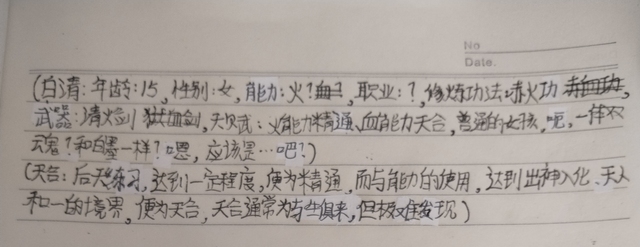 No
Date.
(白清:年龄:15,性别:女,能力:火?血?,职业:?,修炼功法:赤火功
武器:清炎剑 血剑,天赋:火能力精通、血能力天合,普通的女孩,呃,一样不
?和白墨一样?嗯,应该是…吧?)
(天合:后天练习,达到一定程度,便为精通,而与能力的使用,达到出神入化、天人
和一的境界,便为天合,天合通常为与生俱来,但极难发现)